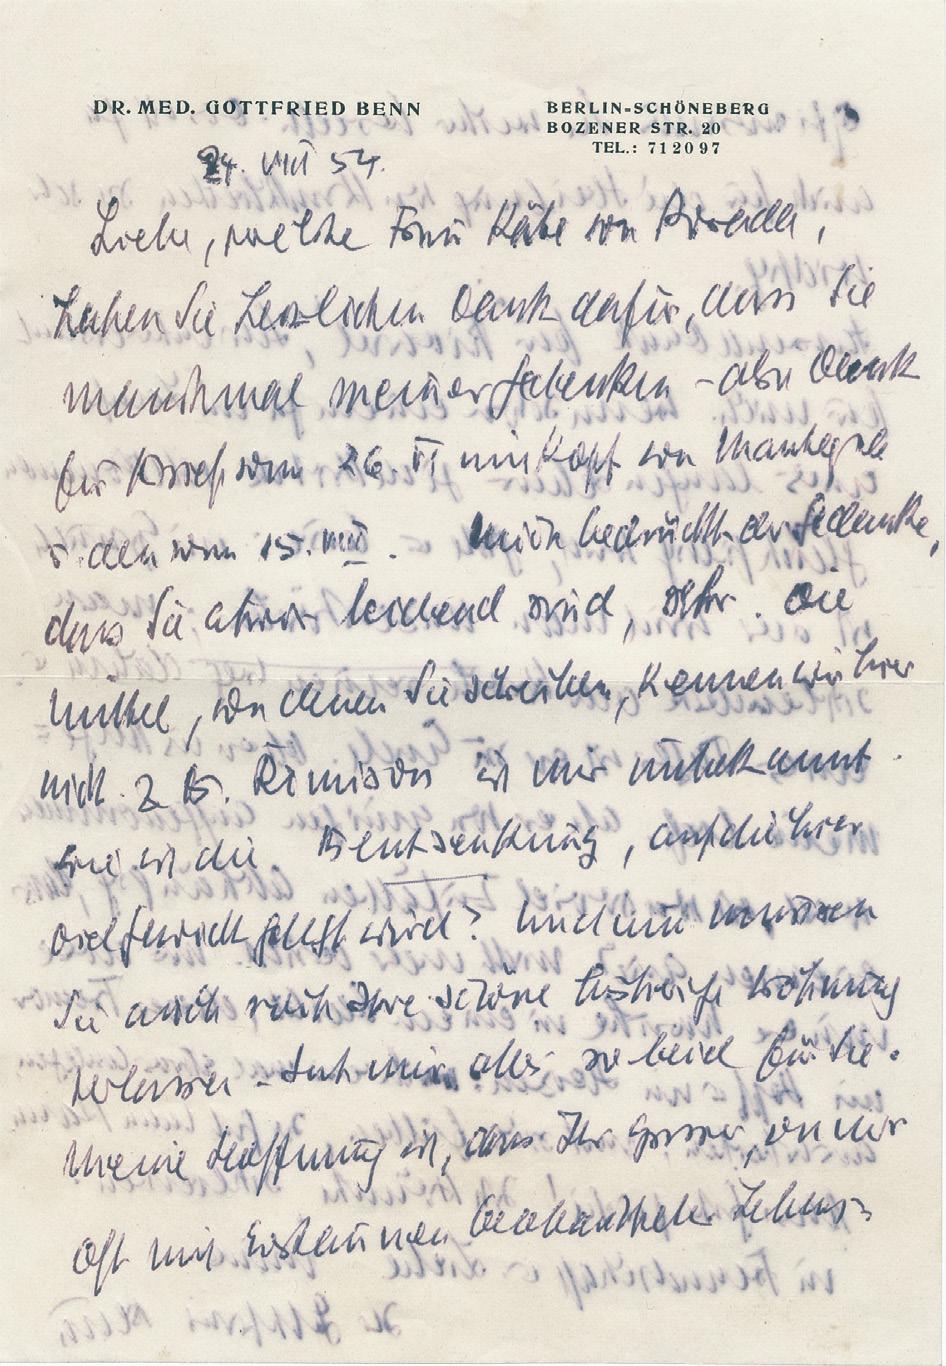 DR. MED. GOTTFRIED BENN
BERLIN-SCHÖNEBERG
BOZENER STR. 20
TEL.: 71 20 97
24. VIII 54.
Liebe, Frau Käte von Porada,
haben Sie herzlichen Dank dafür, dass Sie
manchmal meiner gedenken – also Dank
für Brief vom 26. VI mit Kopf von Mantegna
u. den vom 15. VIII. Mich bedrückt der Gedanke,
dass Sie leidend sind, sehr. Die
Mittel, von denen Sie schreiben, kennen wir hier
nicht. z B. ist mir unbekannt.
wie ist die Blutsenkung, auf die hier
viel Gewicht gelegt wird? Und nun müssen
Sie auch noch Ihre schöne Wohnung
verlassen – tut mir alles so leid für Sie.
Meine Hoffnung ist, dass Ihr grosser, von mir
oft mit Erstaunen beobachteter Lebens=